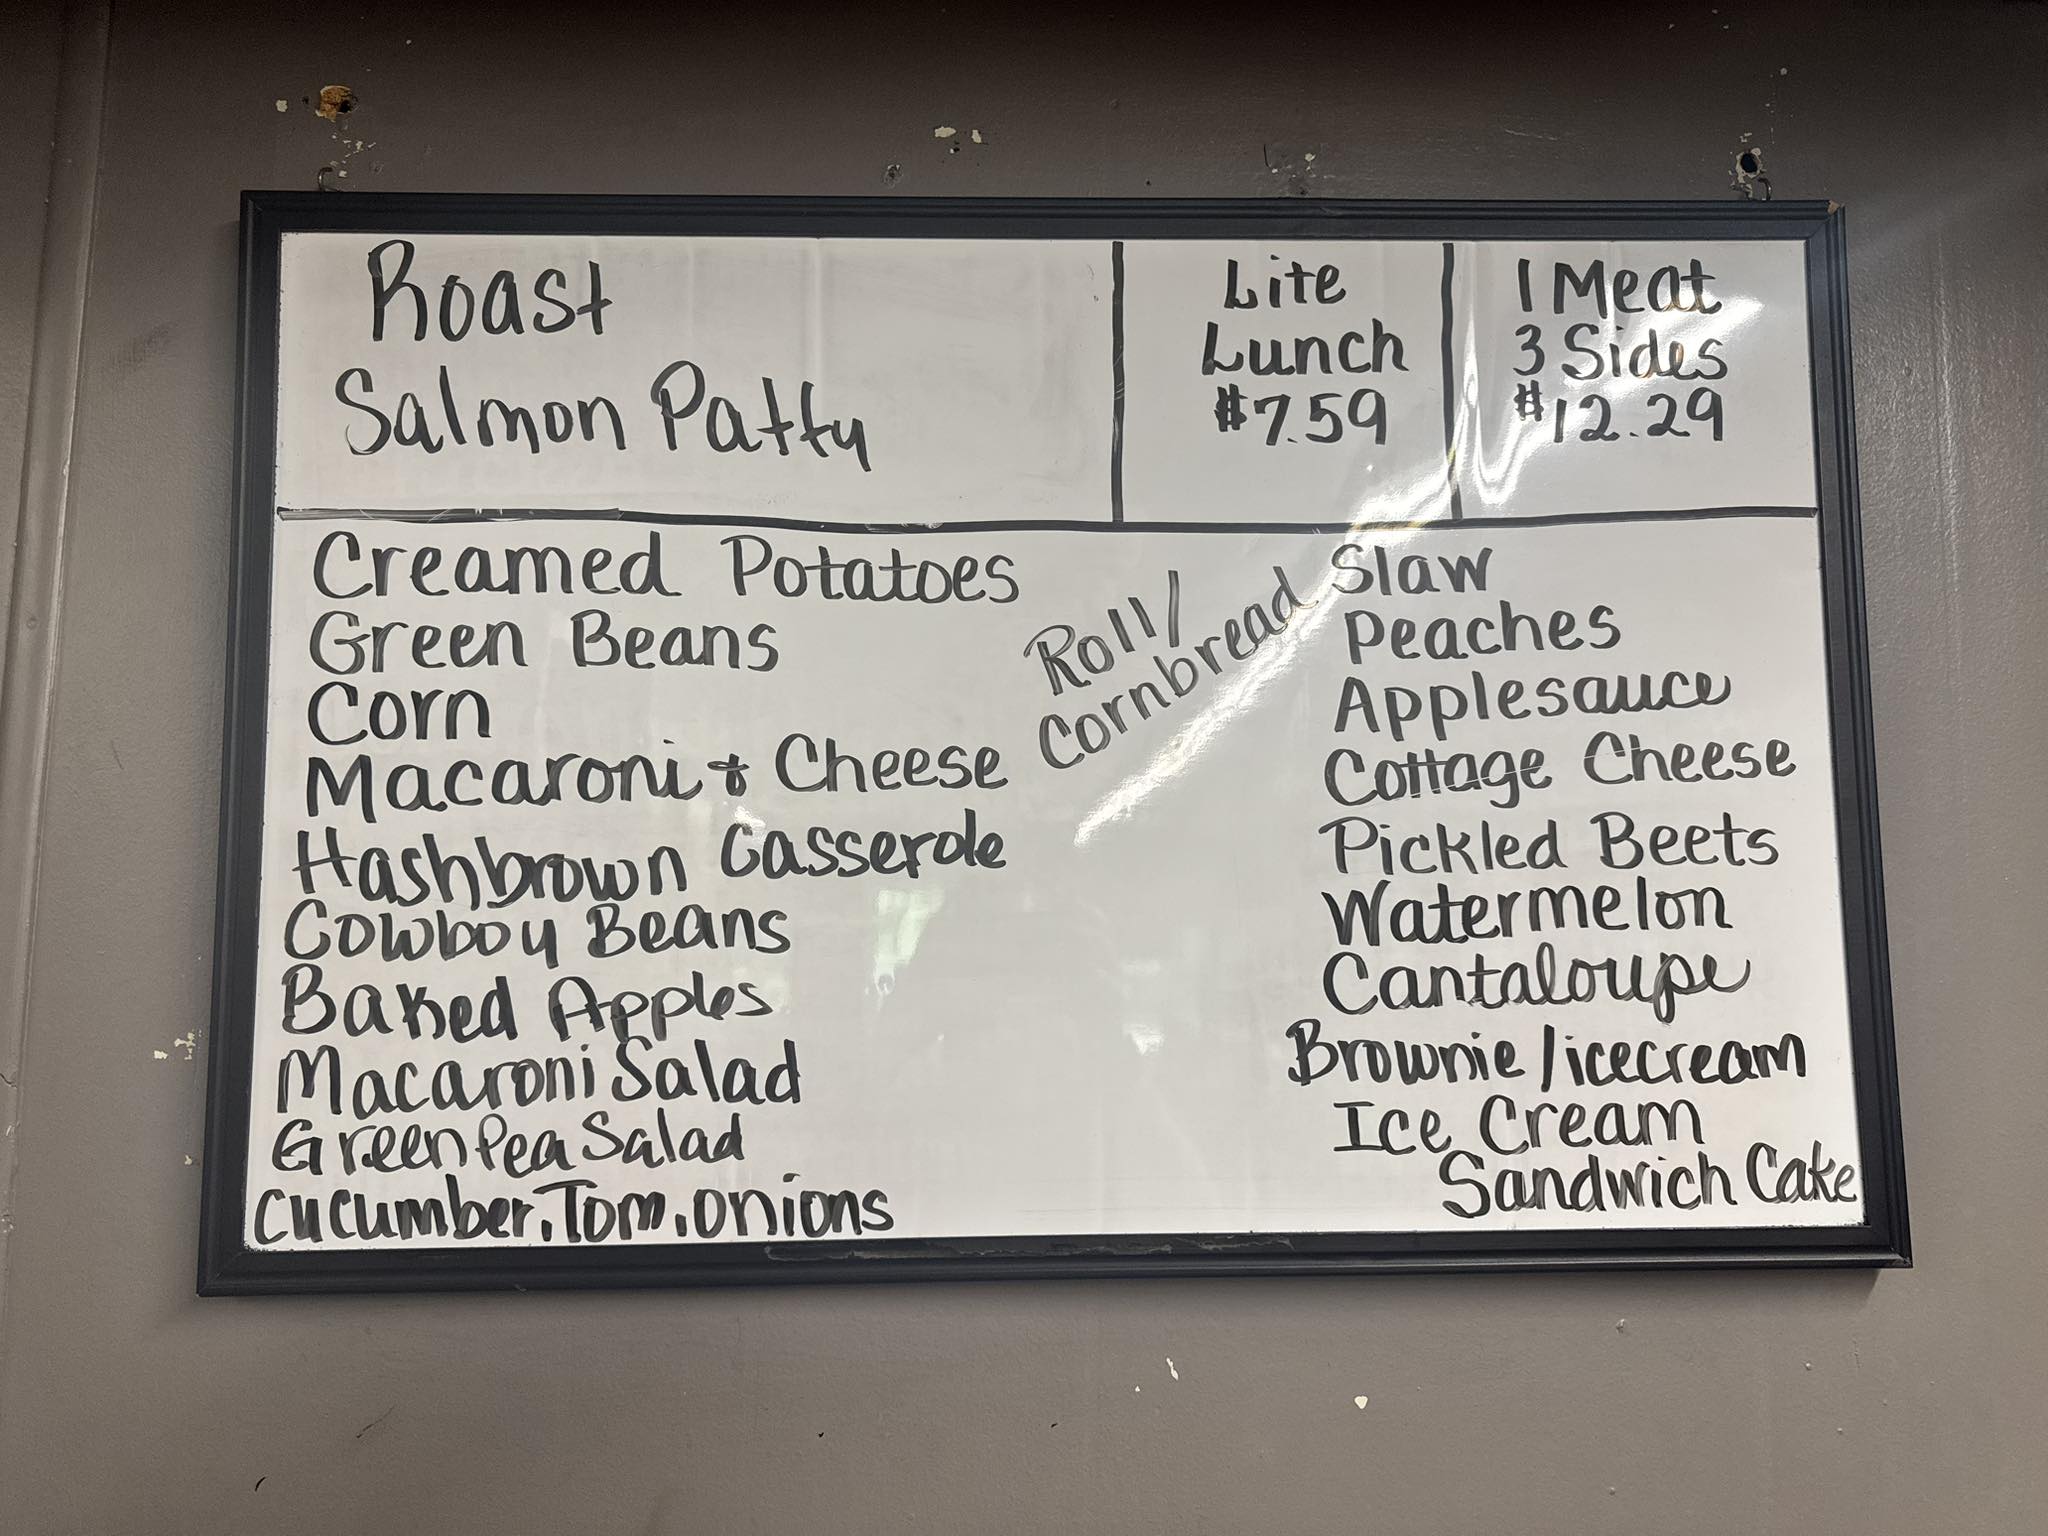 Roast
Salmon Patty
Lite
Lunch
$7.59
1 Meat
3 Sides
$12.29
Creamed Potatoes
Green Beans
Corn
Macaroni & Cheese
Hashbrown Casserole
Cowboy Beans
Baked Apples
Macaroni Salad
Green Pea Salad
Cucumber, Tom, onions
Roll/
Cornbread
Slaw
Peaches
Applesauce
Cottage Cheese
Pickled Beets
Watermelon
Cantaloupe
Brownie/icecream
Ice Cream
Sandwich Cake